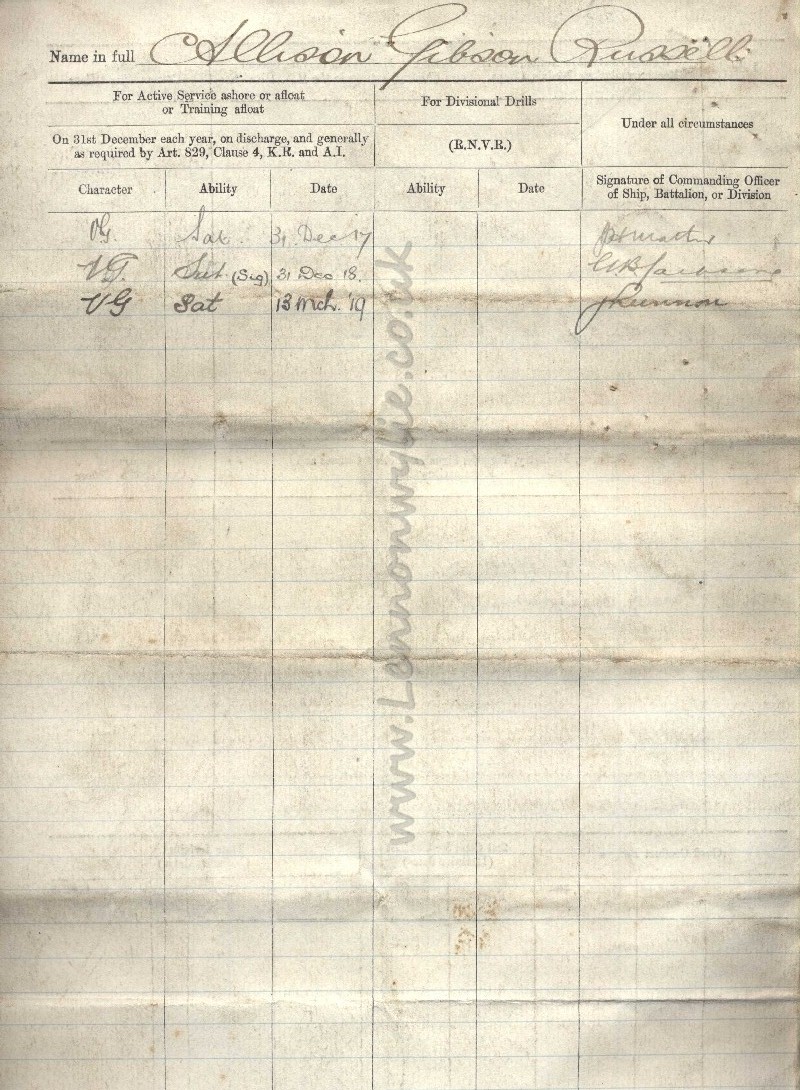 Name in full Allison Gibson Russell
For Active Service ashore or afloat
or Training afloat
On 31st December each year, on discharge, and generally
as required by Art. 829, Clause 4, K.R. and A.I.
For Divisional Drills
(R.N.V.R.)
Under all circumstances
Character Ability Date Ability Date Signature of Commanding Officer
of Ship, Battalion, or Division
VG. Sat. 31 Dec 17
VG. Sat (Sig) 31 Dec 18.
VG Sat 13 Mch. '19
www.Lennonwylie.co.uk